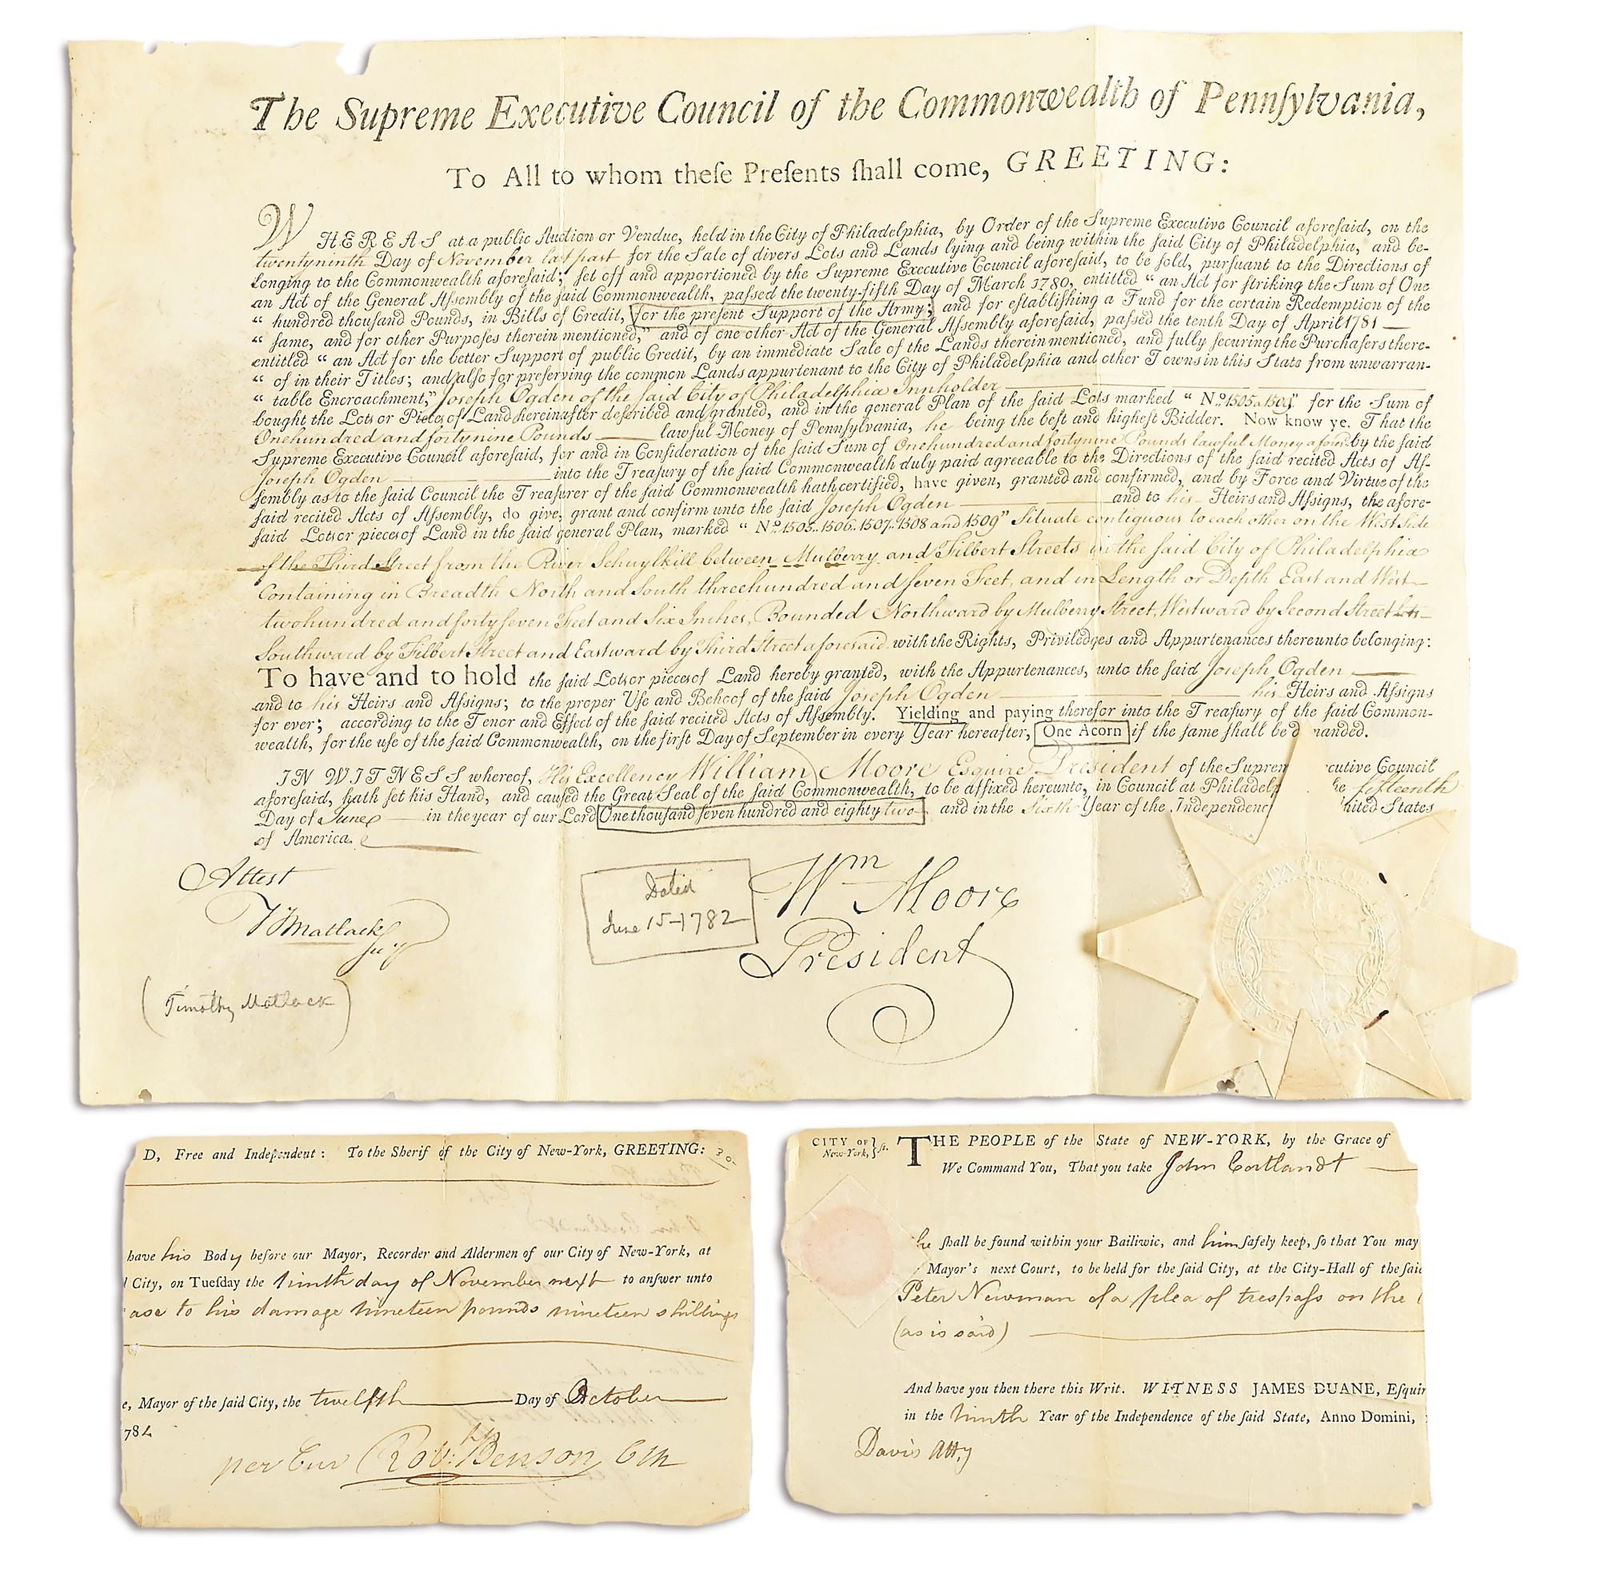 The Supreme Executive Council of the Commonwealth of Pennſylvania,
To All to whom theſe Preſents ſhall come, GREETING:
WHEREAS at a public Auction or Vendue, held in the City of Philadelphia, by Order of the Supreme Executive Council aforeſaid, on the
twentyninth Day of November laſt paſt for the Sale of divers Lots and Lands lying and being within the ſaid City of Philadelphia, and be-
longing to the Commonwealth aforeſaid; ſet off and apportioned by the Supreme Executive Council aforeſaid, to be ſold, purſuant to the Directions of
an Act of the General Aſſembly of the ſaid Commonwealth, paſſed the twenty-fifth Day of March 1780, entitled “ an Act for ſtriking the Sum of One
“ hundred thouſand Pounds, in Bills of Credit, for the preſent Support of the Army; and for eſtabliſhing a Fund for the certain Redemption of the
“ ſame, and for other Purpoſes therein mentioned,” and of one other Act of the General Aſſembly aforeſaid, paſſed the tenth Day of April 1781 —
entitled “ an Act for the better Support of public Credit, by an immediate Sale of the Lands therein mentioned, and fully ſecuring the Purchaſers there-
“ of in their Titles; and alſo for preſerving the common Lands appurtenant to the City of Philadelphia and other Towns in this State from unwarran-
“ table Encroachment,” Joseph Ogden of the ſaid City of Philadelphia Innholder
bought the Lots or Pieces of Land hereinafter deſcribed and granted, and in the general Plan of the ſaid Lots marked “ No. 1505 a 1509” for the Sum of
One hundred and fortynine Pounds — lawful Money of Pennſylvania, he being the beſt and higheſt Bidder. Now know ye. That the
Supreme Executive Council aforeſaid, for and in Conſideration of the ſaid Sum of One hundred and fortynine Pounds lawful Money aforesd by the ſaid
Joseph Ogden — into the Treaſury of the ſaid Commonwealth duly paid agreeable to the Directions of the ſaid recited Acts of Aſ-
ſembly as to the ſaid Council the Treaſurer of the ſaid Commonwealth hath certified, have given, granted and confirmed, and by Force and Virtue of the
ſaid recited Acts of Aſſembly, do give, grant and confirm unto the ſaid Joseph Ogden — and to his Heirs and Aſſigns, the afore-
ſaid Lots or pieces of Land in the ſaid general Plan, marked “ No. 1505..1506..1507..1508 and 1509” Situate contiguous to each other on the West Side
of the Third Street from the River Schuylkill between Mulberry and Filbert Streets in the ſaid City of Philadelphia
Containing in Breadth North and South three hundred and ſeven Feet, and in Length or Depth East and West
two hundred and forty ſeven Feet and Six Inches, Bounded Northward by Mulberry Street, Westward by Second Street
Southward by Filbert Street and Eastward by Third Street aforesaid with the Rights, Priviledges and Appurtenances thereunto belonging:
To have and to hold the ſaid Lots or pieces of Land hereby granted, with the Appurtenances, unto the ſaid Joseph Ogden —
and to his Heirs and Aſſigns; to the proper Uſe and Behoof of the ſaid Joseph Ogden — his Heirs and Aſſigns
for ever; according to the Tenor and Effect of the ſaid recited Acts of Aſſembly. Yielding and paying therefor into the Treaſury of the ſaid Common-
wealth, for the uſe of the ſaid Commonwealth, on the firſt Day of September in every Year hereafter, One Acorn if the ſame ſhall be demanded.
IN WITNESS whereof, His Excellency William Moore Esquire President of the Suprem ecutive Council
aforeſaid, hath ſet his Hand, and cauſed the Great Seal of the ſaid Commonwealth, to be affixed hereunto, in Council at Philadelp he fifteenth
Day of June — in the year of our Lord One thouſand ſeven hundred and eighty two and in the Sixth Year of the Independenc United States
of America.
Attest
T Matlack Secy
(Timothy Matlack)
Dated
June 15-1782
Wm Moore
President
D, Free and Independent: To the Sherif of the City of New-York, GREETING:
have his Body before our Mayor, Recorder and Aldermen of our City of New-York, at
City, on Tuesday the ninth day of November next to anſwer unto
ase to his damage nineteen pounds nineteen shillings
e, Mayor of the ſaid City, the twelfth — Day of October
784
per Cur Robt. Benson Clk
CITY OF New-York, } ſs.
THE PEOPLE of the State of NEW-YORK, by the Grace of
We Command You, That you take John Cortlandt —
he ſhall be found within your Bailiwic, and him ſafely keep, ſo that You may
Mayor's next Court, to be held for the ſaid City, at the City-Hall of the ſaid
Peter Newman of a plea of treſpaſs on the
(as is said)
And have you then there this Writ. WITNESS JAMES DUANE, Eſquir
in the ninth Year of the Independence of the ſaid State, Anno Domini,
Davis Atty